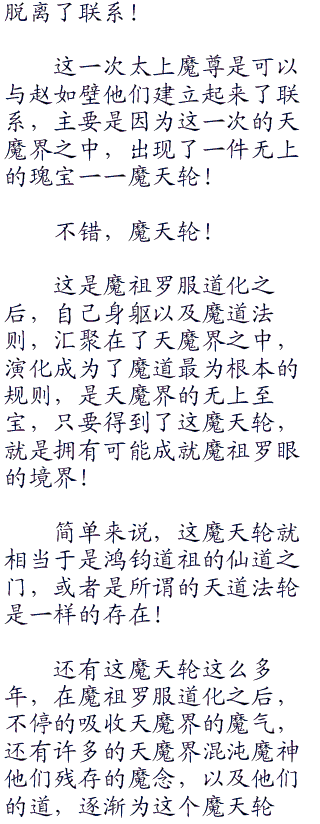 脱离了联系！
　　这一次太上魔尊是可以
与赵如壁他们建立起来了联
系，主要是因为这一次的天
魔界之中，出现了一件无上
的瑰宝一一魔天轮！
　　不错，魔天轮！
　　这是魔祖罗服道化之
后，自己身躯以及魔道法
则，汇聚在了天魔界之中，
演化成为了魔道最为根本的
规则，是天魔界的无上至
宝，只要得到了这魔天轮，
就是拥有可能成就魔祖罗眼
的境界！
　　简单来说，这魔天轮就
相当于是鸿钧道祖的仙道之
门，或者是所谓的天道法轮
是一样的存在！
　　还有这魔天轮这么多
年，在魔祖罗服道化之后，
不停的吸收天魔界的魔气，
还有许多的天魔界混沌魔神
他们残存的魔念，以及他们
的道，逐渐为这个魔天轮